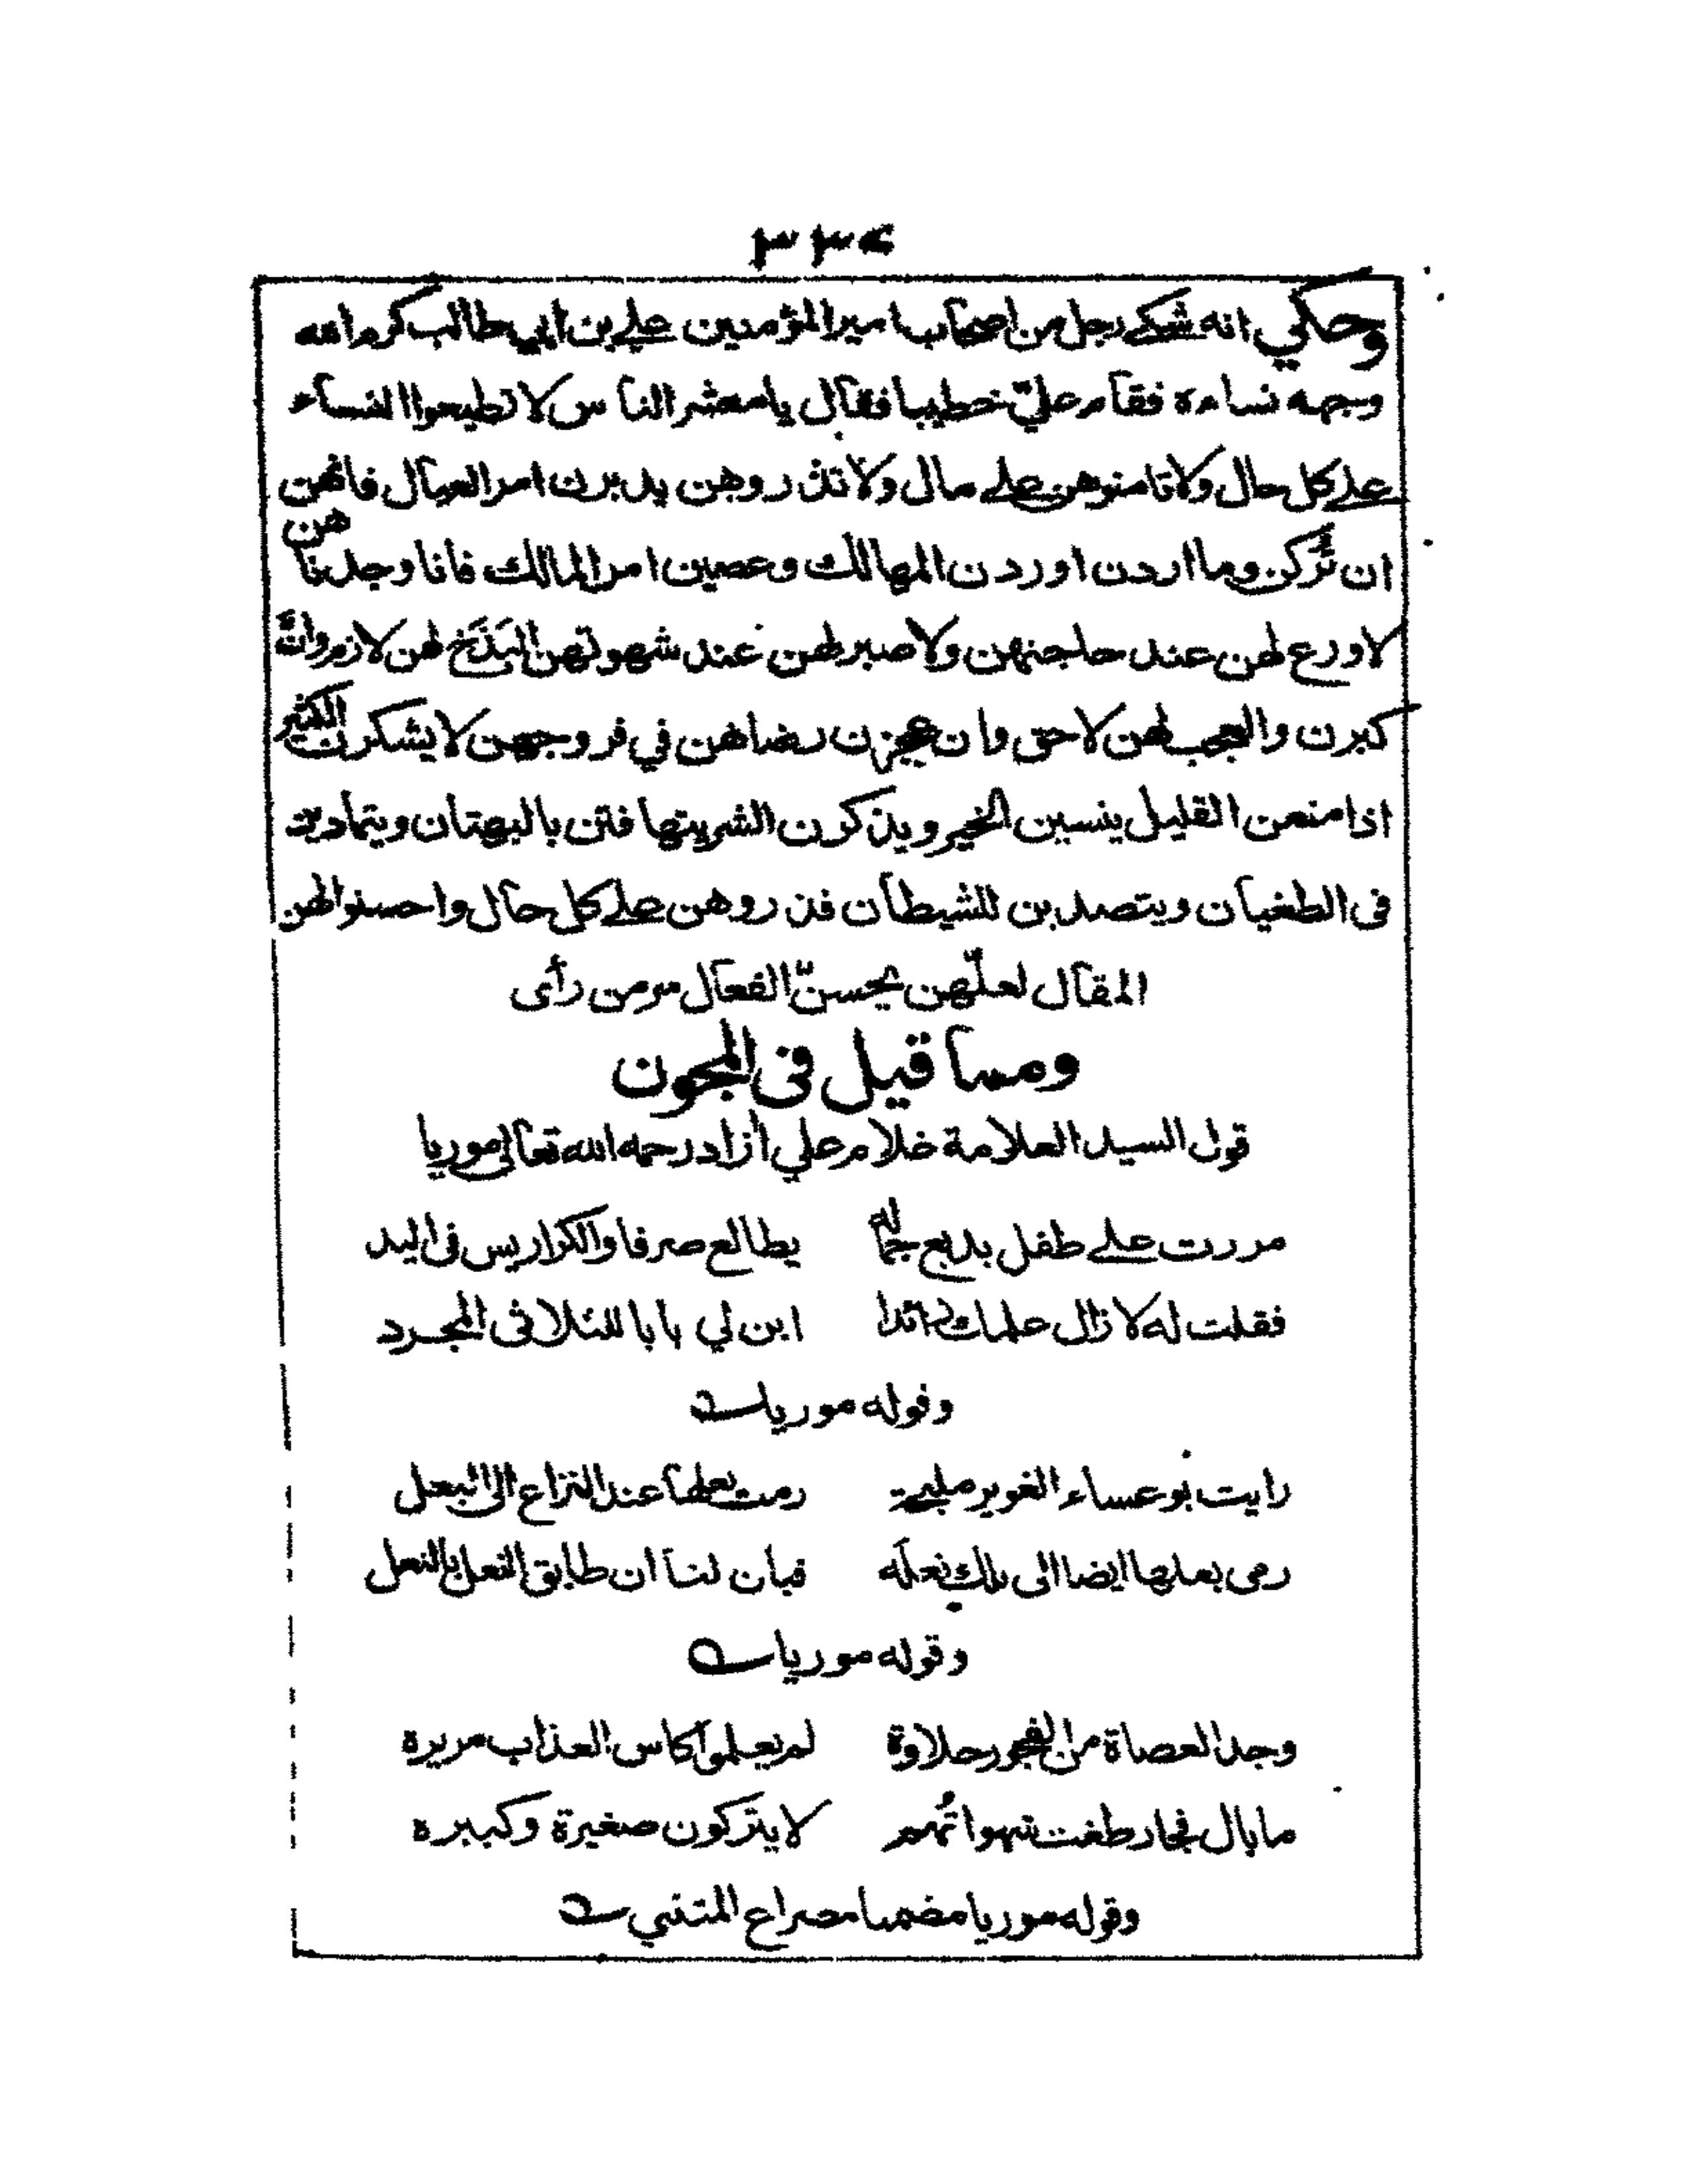 ٣٣٤
وحكي انه شكى رجل من اصحاب امير المؤمنين على بن ابي طالب كرم الله
وجهه نساءه فقام عليّ خطيبا فقال يا معشر الناس لا تطيعوا النساء
على كل حال ولا تامنوهن على مال ولا تذروهن يدبرن امر العيال فانهن
ان تُركن وما اردن اوردن المهالك وعصين امر المالك فانا وجدناهن
لا ورع لهن عند حاجتهن ولا صبر لهن عند شهوتهن البَذَخ لهن لازم وان
كبرن والعجب لهن لاحق وان عجزن رضاهن في فروجهن لا يشكرن الكثير
اذا منعن القليل ينسين الخير ويذكرن الشر يتهافتن بالبهتان ويتمادين
فى الطغيان ويتصدين للشيطان فذروهن على كل حال واحسنوا لهن
المقال لعلّهن يحسنّ الفعال مر من رأى
ومما قيل فى المجون
قول السيد العلامة غلام علي ازاد رحمه الله تعالى موريا
مررت على طفل بديع جماله يطالع صرفا والكراريس فى اليد
فقلت له لا زال علمك زائدا ابن لي بابا للثلاثى المجرد
وقوله موريا
رايت بوعساء الغوير مليحة رمت بعلها عند النزاع الى البعل
رمى بعلها ايضا الى تلك نعله فبان لنا ان طابق النعل بالنعل
وقوله موريا
وجد العصاة من الفجور حلاوة لم يعلموا كاس العذاب مريرة
ما بال فجار طغت شهواتُهم لا يتركون صغيرة وكبيره
وقوله موريا مضمنا مصراع المتنبي